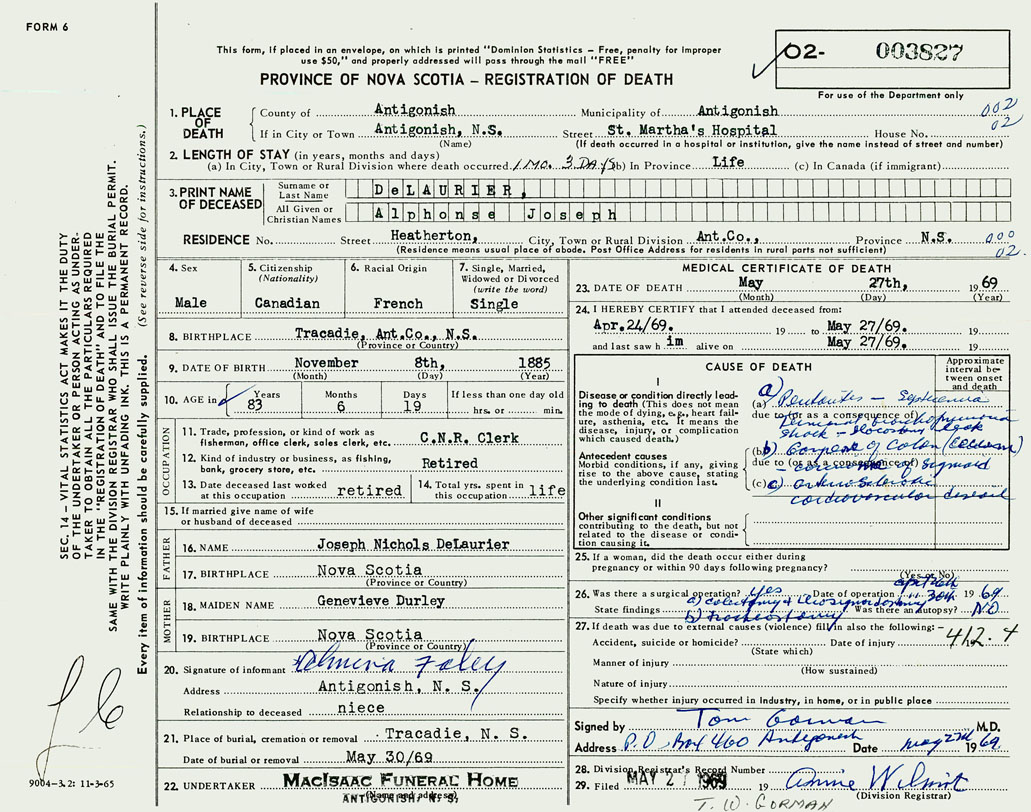 FORM 6
This form, if placed in an envelope, on which is printed "Dominion Statistics – Free, penalty for improper
use $50," and properly addressed will pass through the mail "FREE"
PROVINCE OF NOVA SCOTIA – REGISTRATION OF DEATH
O2- 003827
For use of the Department only
1. PLACE OF DEATH
County of Antigonish Municipality of Antigonish 002
If in City or Town Antigonish, N.S. Street St. Martha's Hospital House No. 02
(Name) (If death occurred in a hospital or institution, give the name instead of street and number)
2. LENGTH OF STAY (in years, months and days)
(a) In City, Town or Rural Division where death occurred 1 MO. 3 DAYS (b) In Province Life (c) In Canada (if immigrant)
3. PRINT NAME OF DECEASED
Surname or Last Name DeLAURIER,
All Given or Christian Names Alphonse Joseph
RESIDENCE No. Street Heatherton, City, Town or Rural Division Ant.Co., Province N.S. 000
(Residence means usual place of abode. Post Office Address for residents in rural parts not sufficient) 02.
4. Sex Male
5. Citizenship (Nationality) Canadian
6. Racial Origin French
7. Single, Married, Widowed or Divorced (write the word) Single
8. BIRTHPLACE Tracadie, Ant.Co., N.S.
(Province or Country)
9. DATE OF BIRTH November 8th, 1885
(Month) (Day) (Year)
10. AGE in Years 83 Months 6 Days 19 If less than one day old hrs. or min.
OCCUPATION
11. Trade, profession, or kind of work as fisherman, office clerk, sales clerk, etc. C.N.R. Clerk
12. Kind of industry or business, as fishing, bank, grocery store, etc. Retired
13. Date deceased last worked at this occupation retired
14. Total yrs. spent in this occupation life
15. If married give name of wife or husband of deceased
FATHER
16. NAME Joseph Nichols DeLaurier
17. BIRTHPLACE Nova Scotia
(Province or Country)
MOTHER
18. MAIDEN NAME Genevieve Durley
19. BIRTHPLACE Nova Scotia
(Province or Country)
20. Signature of informant Foley
Address Antigonish, N. S.
Relationship to deceased niece
21. Place of burial, cremation or removal Tracadie, N. S.
Date of burial or removal May 30/69
22. UNDERTAKER MACISAAC FUNERAL HOME
(Name and address)
ANTIGONISH, N. S.
MEDICAL CERTIFICATE OF DEATH
23. DATE OF DEATH May 27th, 1969
(Month) (Day) (Year)
24. I HEREBY CERTIFY that I attended deceased from:
Apr.24/69. 19 to May 27/69. 19
and last saw him alive on May 27/69. 19
CAUSE OF DEATH
Approximate interval between onset and death
I
Disease or condition directly leading to death (This does not mean the mode of dying, e.g., heart failure, asthenia, etc. It means the disease, injury, or complication which caused death.)
a)
(a) Septicemia
due to (or as a consequence of)
Terminal bronchopneumonia
shock
Antecedent causes
Morbid conditions, if any, giving rise to the above cause, stating the underlying condition last.
(b) b) of Colon
due to (or as a consequence of)
of sigmoid
(c) c) arteriosclerotic
cardiovascular disease
II
Other significant conditions contributing to the death, but not related to the disease or condition causing it.
25. If a woman, did the death occur either during pregnancy or within 90 days following pregnancy?
(Yes or No)
26. Was there a surgical operation? yes Date of operation 30th 1969
State findings a) colectomy & Was there an autopsy? NO
b) tracheostomy
27. If death was due to external causes (violence) fill in also the following:–
412.4
Accident, suicide or homicide? Date of injury
(State which)
Manner of injury
(How sustained)
Nature of injury
Specify whether injury occurred in industry, in home, or in public place
Signed by Tom Gorman M.D.
Address P.O. Box 460 Antigonish Date May 27th 1969.
28. Division Registrar's Record Number
29. Filed MAY 27 1969 19 Annie Wilmot
(Division Registrar)
T. W. GORMAN
SEC. 14 – VITAL STATISTICS ACT MAKES IT THE DUTY
OF THE UNDERTAKER OR PERSON ACTING AS UNDER-
TAKER TO OBTAIN ALL THE PARTICULARS REQUIRED
IN THE "REGISTRATION OF DEATH" AND TO FILE THE
SAME WITH THE DIVISION REGISTRAR WHO SHALL ISSUE THE BURIAL PERMIT.
WRITE PLAINLY WITH UNFADING INK. THIS IS A PERMANENT RECORD.
Every item of information should be carefully supplied. (See reverse side for instructions.)
9004-3.2: 11-3-65